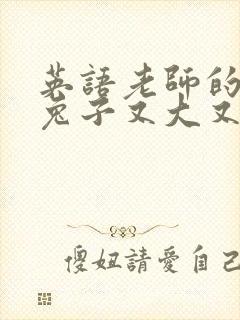 英語老師的
兔子又大又
傻妞請愛自己